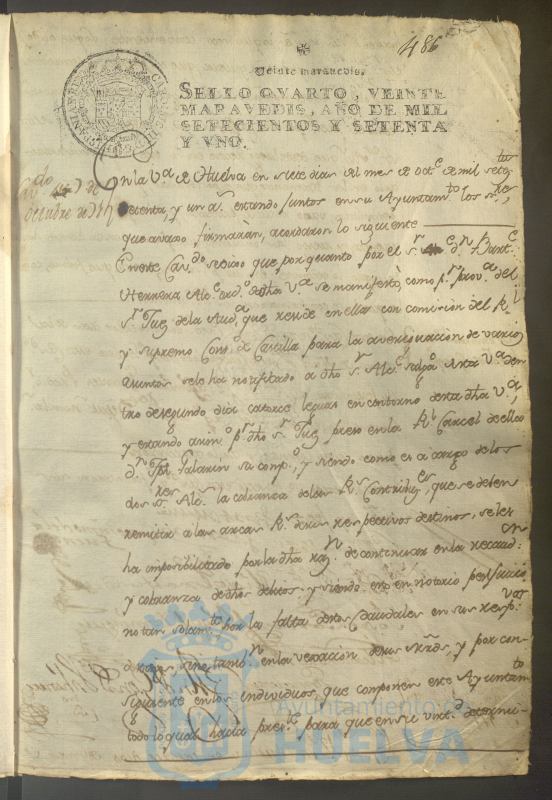 486
Veinte maravedis.
SELLO QVARTO, VEINTE
MARAVEDIS, AÑO DE MIL
SETECIENTOS Y SETENTA
Y VNO.
En la V.a de Huelva en siete dias del mes de oct.e de mil sete.tos
setenta, y un a.s estando juntos en su Ayuntam.to los s.res,
que avaxo firmaràn, acordaron lo siguiente
En este Cav.do se dixo que por quanto por el s.r d.n Bart.e
Herrera Alc.e ord.o de dha V.a se manifestò, como p.r prov.a del
s.r Juez de la Aud.a que reside en ella con comision del R.l
y supremo Cons.o de Castilla para la averiguacion de varios
asuntos se le ha notificado a dho s.r Alc.e salga desta V.a den
tro de segundo dia catorce leguas en contorno desta dha V.a,
y estando asim.o p.r dho s.r Juez preso en la R.l Carcel de ella
d.n Galarin su comp.o, y siendo como es a cargo de los
dos s.res Alc.s la cobranza de las R.s Contribu.es, que se deben
remitir a las arcas R.s de sus respectivos destinos, se les
ha imposibilitado por la dha raz.n de continuar en la recaud.on
y cobranza de dhos debitos, y siendo esto en notorio perjuicio
no tan solam.te por la falta destos Caudales en sus resp.vas
arcas, sino tamb.n en la vexación de sus , y por con
siguiente en los individuos, que componen este Ayuntam.to
todo lo qual hacía pres.te para que en su vist.a determi
octubre de
Ayuntamiento de
HUELVA